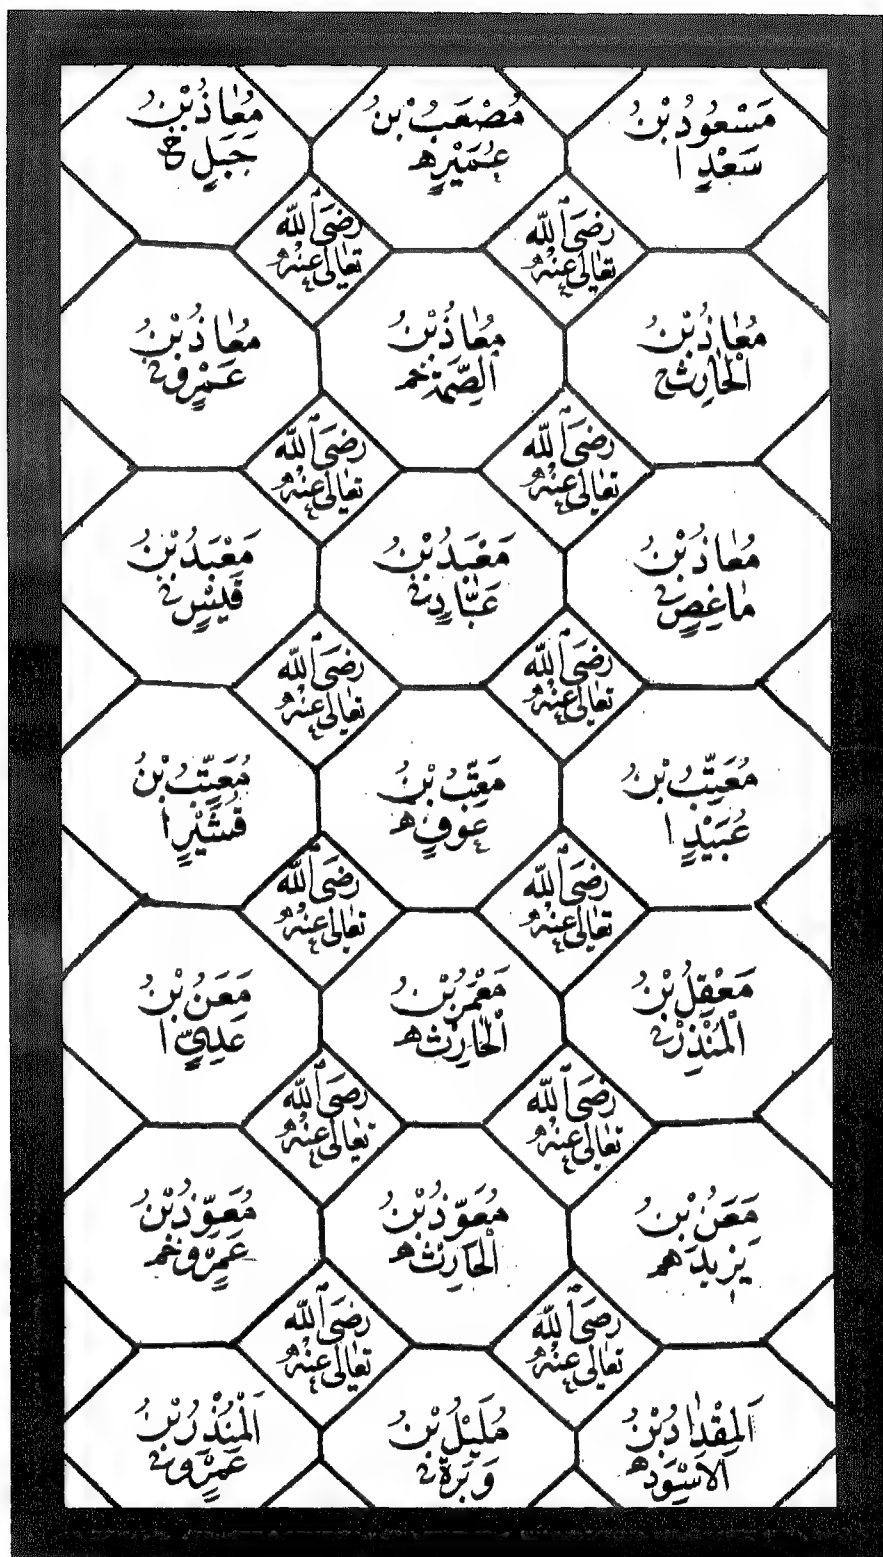 مَسْعُودُ بْنُ
سَعْدٍ ا
مُصْعَبُ بْنُ
عُمَيْرٍ ه
مُعَاذُ بْنُ
جَبَلٍ خ
رَضِيَ اللّٰه
تَعَالٰى عَنْهُ
رَضِيَ اللّٰه
تَعَالٰى عَنْهُ
مُعَاذُ بْنُ
الْحَارِثِ
مُعَاذُ بْنُ
الصِّمَّةِ
مُعَاذُ بْنُ
عَمْرٍو
رَضِيَ اللّٰه
تَعَالٰى عَنْهُ
رَضِيَ اللّٰه
تَعَالٰى عَنْهُ
مُعَاذُ بْنُ
مَاعِصٍ
مَعْبَدُ بْنُ
عَبَّادٍ
مَعْبَدُ بْنُ
قَيْسٍ
رَضِيَ اللّٰه
تَعَالٰى عَنْهُ
رَضِيَ اللّٰه
تَعَالٰى عَنْهُ
مُعَتِّبُ بْنُ
عُبَيْدٍ ا
مُعَتِّبُ بْنُ
عَوْفٍ ه
مُعَتِّبُ بْنُ
قُشَيْرٍ ا
رَضِيَ اللّٰه
تَعَالٰى عَنْهُ
رَضِيَ اللّٰه
تَعَالٰى عَنْهُ
مَعْقِلُ بْنُ
الْمُنْذِرِ
مَعْمَرُ بْنُ
الْحَارِثِ ه
مَعَنُ بْنُ
عَدِيٍّ ا
رَضِيَ اللّٰه
تَعَالٰى عَنْهُ
رَضِيَ اللّٰه
تَعَالٰى عَنْهُ
مَعَنُ بْنُ
يَزِيدَ
مُعَوِّذُ بْنُ
الْحَارِثِ
مُعَوِّذُ بْنُ
عَمْرٍو
رَضِيَ اللّٰه
تَعَالٰى عَنْهُ
رَضِيَ اللّٰه
تَعَالٰى عَنْهُ
اَلْمِقْدَادُ بْنُ
الْاَسْوَدِ ه
مُلَيْلُ بْنُ
وَبَرَةَ
اَلْمُنْذِرُ بْنُ
عَمْرٍو